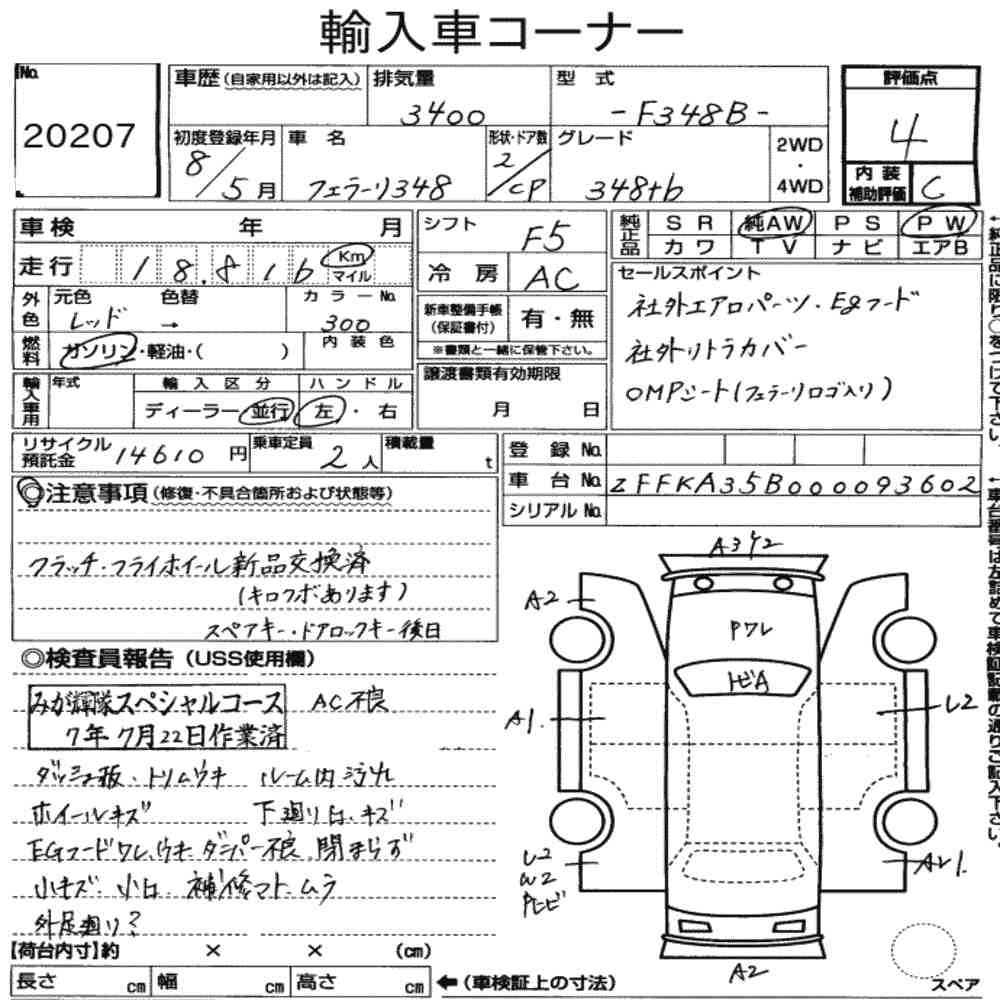 輸入車コーナー
No.
20207
車歴(自家用以外は記入)
排気量
3400
型式
-F348B-
評価点
4
内装
補助評価
C
初度登録年月
8/5月
車名
フェラーリ348
形状・ドア数
2/CP
グレード
348tb
2WD
・
4WD
車検 年 月
走行 18.816 Km
マイル
外色
元色
レッド
色替
→
カラーNo.
300
燃料
ガソリン・軽油・( )
内装色
輸入車用
年式
輸入区分
ディーラー・並行
ハンドル
左・右
シフト
F5
冷房
AC
新車整備手帳
(保証書付)
有・無
※書類と一緒に保管下さい。
譲渡書類有効期限
月 日
純正品
SR 純AW PS PW
カワ TV ナビ エアB
セールスポイント
社外エアロパーツ・Egフード
社外リトラカバー
OMPシート(フェラーリロゴ入り)
←純正品に限り○をつけて下さい。
リサイクル
預託金
14610円
乗車定員
2人
積載量
t
登録No.
車台No.
ZFFKA35B000093602
シリアルNo.
←車台番号は左詰めで車検証記載の通りご記入下さい。
◎注意事項(修復・不具合箇所および状態等)
クラッチ・フライホイール新品交換済
(キロクボあります)
スペアキー・ドアロックキー後日
◎検査員報告(USS使用欄)
みが輝隊スペシャルコース
7年7月22日作業済
AC不良
ダッシュ板・トリムウキ ルーム内汚れ
ホイールキズ 下廻りサビ、キズ
EGフードワレ、ウキ、ダンパー不良、閉まらず
小キズ、小凹、補修マト、ムラ
外足廻り?
A3Y2
A2
Pワレ
トビA
A1
L2
U2
W2
A2
【荷台内寸】約 × × (cm)
長さ cm 幅 cm 高さ cm
←(車検証上の寸法)
スペア